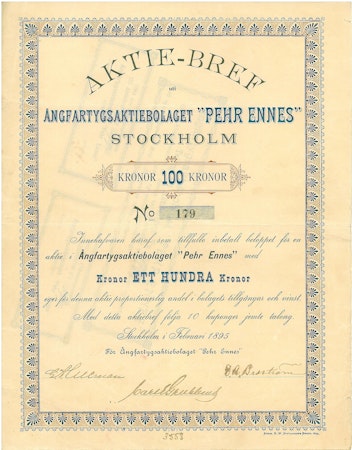 AKTIE-BREF
uti
ÅNGFARTYGSAKTIEBOLAGET "PEHR ENNES"
STOCKHOLM
KRONOR 100 KRONOR
No 179
Innehafvaren häraf som tillfullo inbetalt beloppet för en
aktie i Ångfartygsaktiebolaget "Pehr Ennes" med
Kronor ETT HUNDRA Kronor
eger för denna aktie proportionerlig andel i bolagets tillgångar och vinst.
Med detta aktiebref följa 10 kuponger jemte talong.
Stockholm i Februari 1895
För Ångfartygsaktiebolaget "Pehr Ennes"